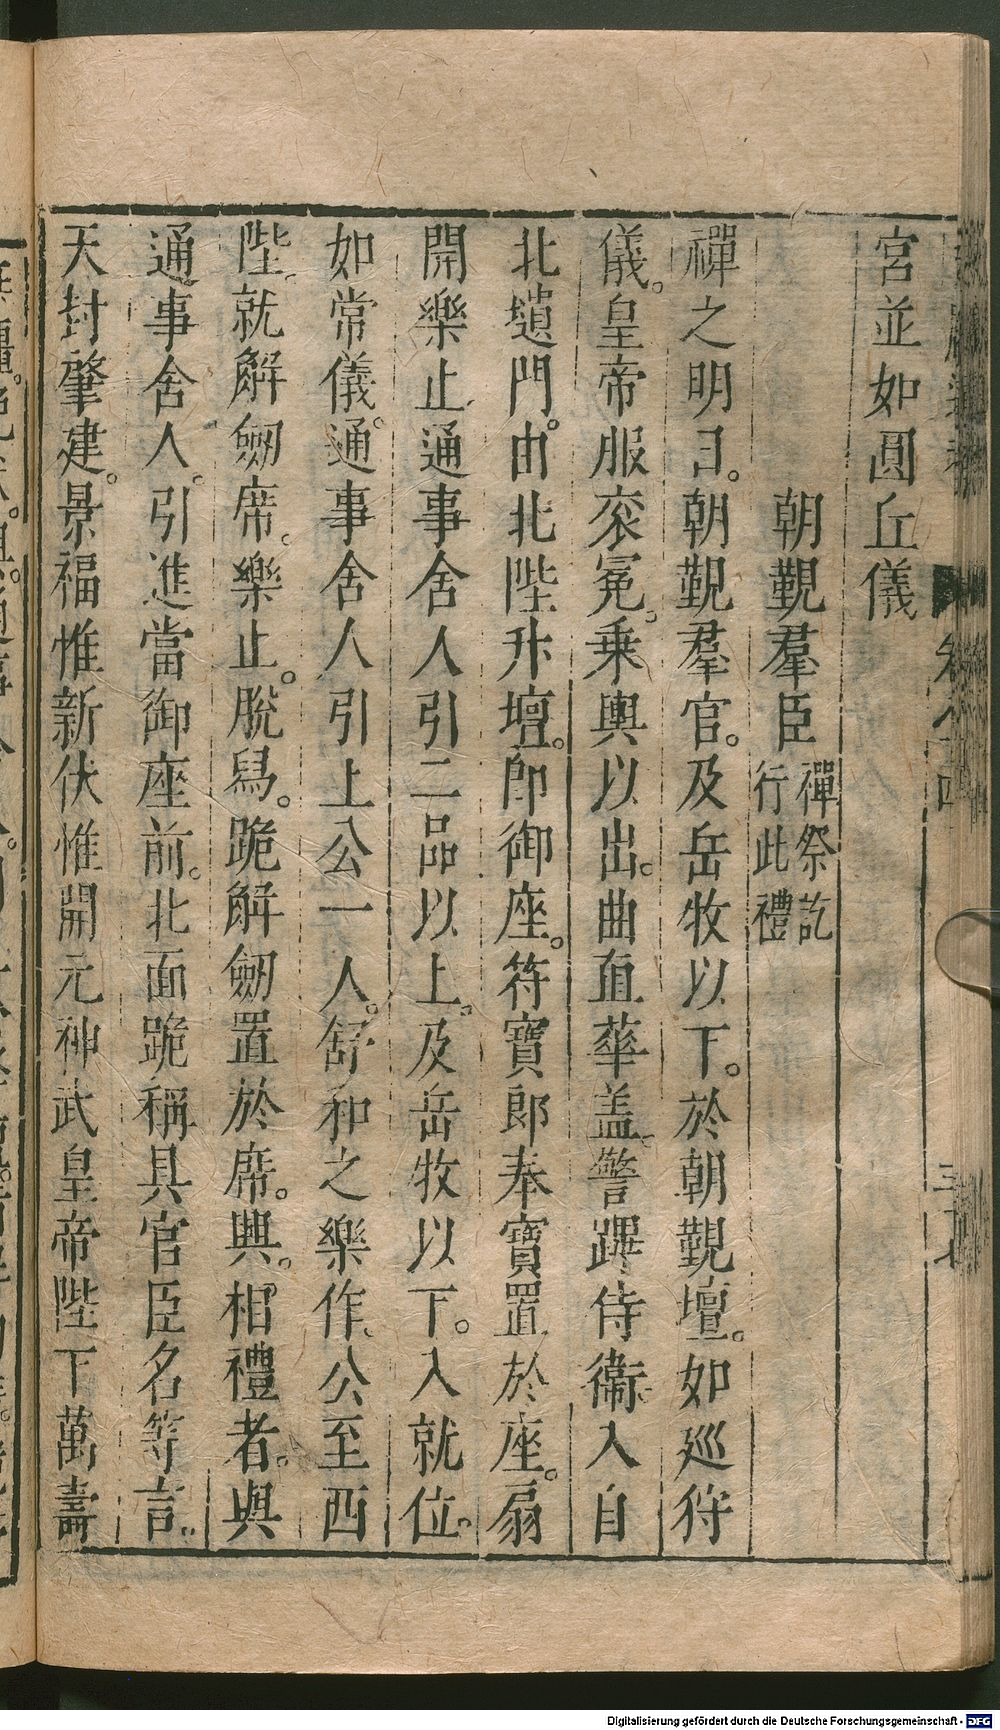 宮並如圓丘儀
朝覲羣臣 禪祭訖行此禮
禪之明日。朝覲羣官。及岳牧以下。於朝覲壇。如巡狩
儀。皇帝服衮冕。乘輿以出。曲直華盖。警蹕侍衞。入自
北壝門。由北陛升壇。即御座。符寶郎奉寶置於座。扇
開樂止。通事舍人引二品以上。及岳牧以下。入就位。
如常儀。通事舍人引上公一人。舒和之樂作。公至西
陛。就解劒席。樂止。脫舄。跪解劒置於席。興。相禮者。與
通事舍人。引進當御座前。北面跪稱具官臣名等言。
天封肇建。景福惟新伏惟開元神武皇帝陛下萬壽
Digitalisierung gefördert durch die Deutsche Forschungsgemeinschaft - DFG